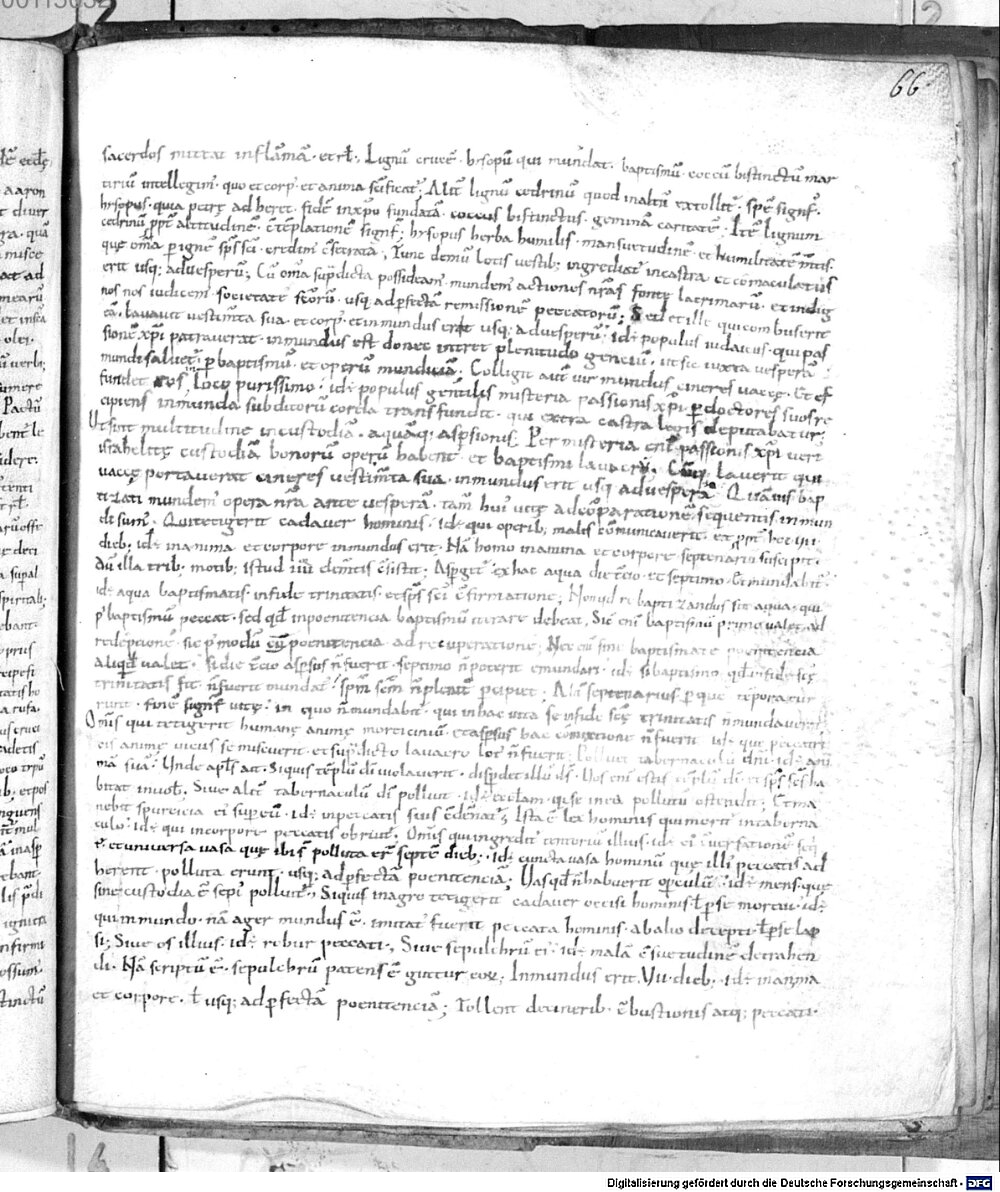 66
sacerdos mittat inflāmā · et rł · Lignū crucē · hysopū qui mundat · baptismū · coccū bistinctū mar
tiriū intellegim̄ · quo et corp̄ et anima sc̄ificat̄ · Alit̄ lignū cedrinū quod inaltū extollit̄ · spē signf̄ ·
hysopus · quia petrę adheret · fidē inxp̄o fundatā · coccus bistinctus · geminā caritatē · Itē lignum
cedrinū ppt̄ altitudinē · c̄tēplationē signf̄ · hysopus herba humilis · mansuetudinē · et humilitatē
que om̄a p ignē sp̄s sc̄i · eredim̄ c̄secrata · Tunc demū lotis vestib; ingrediat̄ incastra et cōmaculatus
erit usq; aduesperū; Cū om̄a sup̄dicta possideam̄ · mundem̄ actiones nr̄as fonte lacrimarū · et indig
nos nos iudicem̄ societate sc̄orū · usq; adpfectā remissionē peccatorū; Sed et ille qui combuserit
eā · lavavit vestim̄ta sua · et corp̄ · et inmundus erit usq; aduesperū; idē populus iudaicus · qui pas
sionē xp̄i patraverat · inmundus est donec intret plenitudo genciū · ut sic iuxta vesperā
mundi salvet̄ · p baptismū · et operū munduiā · Colligit aut̄ vir mundus cineres vaccę · Et ef
fundet eos in loco purissimo · idē populus gentilis misteria passionis xp̄i p doctores suos re
cipiens inmunda subditorū corda transfundit · qui extra castra legis deputabatur;
Ut sint multitudine incustodiā · aquāq; aspsionis · Per misteria eni passionis xp̄i veri
israhelitę custodiā bonorū operū habent · et baptismi lavacrū · Cūq; laverit qui
vaccę portaverat cineres vestim̄ta sua · inmundus erit usq; aduesperā · Quāvis bap
tizati mundem̄ opera nr̄a ante vesperā · tam̄ hui vitę adcōparationē sequentis inmun
di sum̄ · Qui tetigerit cadaver hominis · idē qui operib; malis cōmunicaverit · et ppt̄ hoc vii
dieb; idē inanima et corpore inmundus erit · Nā homo inanima et corpore septenariū suscipit ·
Dū illa trib; motib; istud iiii elem̄tis c̄sistit · Aspgit̄ ex hac aqua die tercio · et septimo · et mundabit̄
idē aqua baptismatis · infide trinitatis · et sp̄s sc̄i c̄firmatione; Non qđ rebaptizandus sit aqua · qui
p' baptismū peccat · sed qđ inpoenitencia baptismū curare debeat · Sic eni baptismū primo valet ad
redēpcionē · sic p' modū poenitencia ad recuperationē; Nec eni sine baptismate poenitencia
aliqđ valet · Si die t̄cio aspsus n̄ fuerit · septimo n̄ poterit emundari · idē si baptismo qđ infide scę
trinitatis fit n̄ fuerit mundat̄ · sp̄m sc̄m n̄ · Alit̄ septenarius p que tēpora
runt · finē signf̄ vitę · in quo n̄ mundabit̄ · qui in hac vita se infide scę trinitatis n̄ mundaverit
Omīs qui tetigerit humanę animę morticinū · et aspsus hac comixtione n̄ fuerit idē que peccatri
cis animę viciis se miscuerit · et sup̄dicto lavacro lot̄ n̄ fuerit; Polluet tabernaculū dn̄i · idē ani
mā suā · Unde apl̄s ait · Siquis tēplū dī violaverit · dispdet illū dś · Vos eni estis tēplū dī · et sp̄s scś ha
bitat invob̄ · Sive alit̄ tabernaculū dī polluit · idē eccłam · qui se in ea pollutū ostendit; Et ma
nebit spurcicia ei sup eū · idē inpeccatis suis c̄dēnat̄; Ista ē lex hominis qui morit̄ in taberna
culo · idē qui incorpore peccatis obruit̄ · Omīs qui ingredit̄ tentoriū illius · idē ei c̄versationē seq̄
ē · et universa vasa quę ibi s̄ polluta er̄ septē dieb; · idē cuncta vasa hominū quę illi peccatis ad
herent · polluta erunt · usq; adpfectā poenitenciā; Vas qđ n̄ habuerit opculū · idē mens quę
sine custodia ē sepi polluit̄ · Siquis inagro tetigerit cadaver occisi hominis · ł p se mortui · idē
qui inmundo · nā ager mundus ē · imitat̄ fuerit peccata hominis abalio decepti · ł p se lap
si; Sive os illius · idē robur peccati · Sive sepulchrū ei · idē malā c̄suetudinē detrahen
di · Nā scriptū ē · sepulchrū patens ē guttur eoꝝ · Inmundus erit vii dieb · idē inanima
et corpore · ł usq; adpfectā poenitenciā; Tollent decinerib · c̄bustionis atq; peccati ·
Digitalisierung gefördert durch die Deutsche Forschungsgemeinschaft - DFG